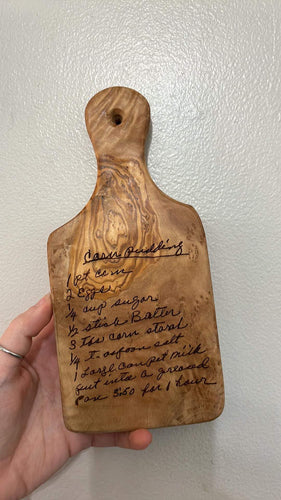 Corn Pudding
1 pt corn
2 Eggs
1/4 cup sugar
1/2 stick Batter
3 tbs corn starch
1/4 T. aspoon salt
1 Large Can pet milk
put into a greased
Pan 350 for 1 hour